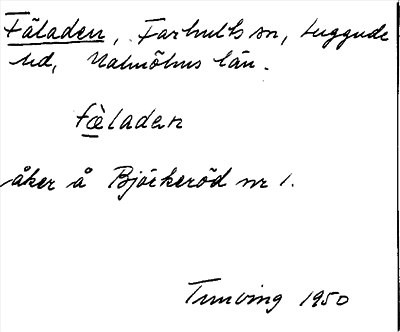 Fäladen, Farhults sn, Luggude
hd, Malmöhus län.
fæ̀laden
åker å Bjärkeröd nr 1.
Tunving 1950